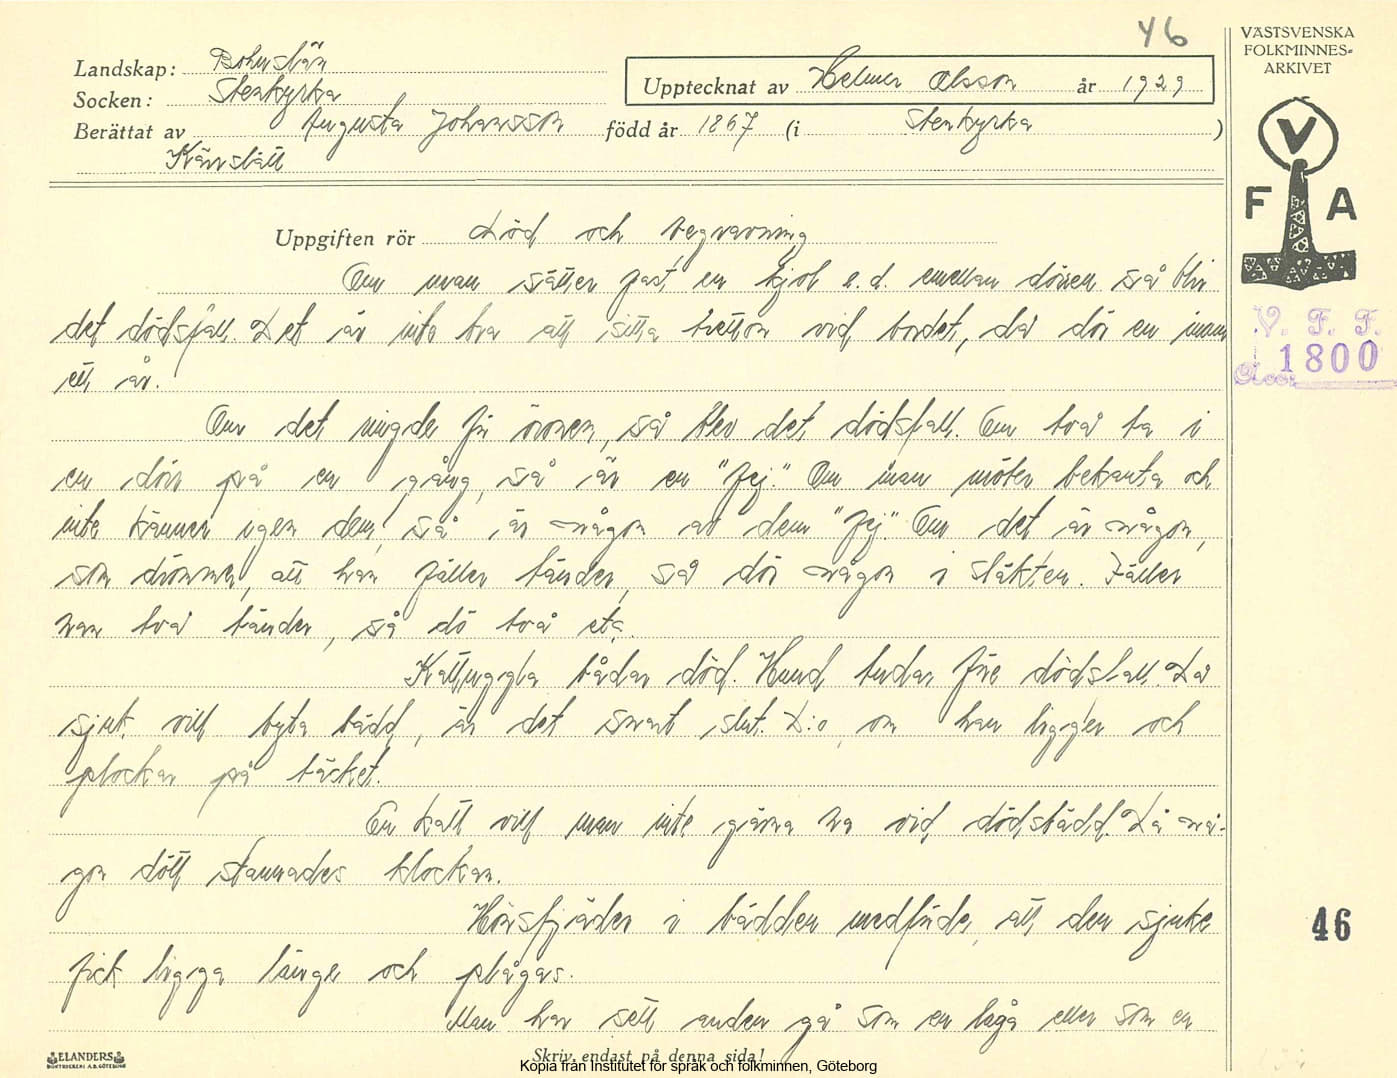 46
VÄSTSVENSKA
FOLKMINNES-
ARKIVET
Landskap: Bohuslän
Upptecknat av Helmer Olsson år 1929
Socken: Stenkyrka
Berättat av Augusta Johansson född år 1867 (i Stenkyrka )
Kärrslätt
V
F A
Uppgiften rör Död och begravning
Om man sätter fast en kjol e. d. emellan dörren så blir
det dödsfall. Det är inte bra att sitta tretton vid bordet, då dör en inom
ett år.
V. F. F.
1800
Acc.
Om det ringde för öronen, så blev det dödsfall. Om två ta i
en dörr på en gång, så är en "fej." Om man möter bekanta och
inte känner igen dem, så är någon av dem "fej." Om det är någon,
som drömmer, att han fäller tänder, så dör någon i släkten. Fäller
han två tänder, så dö två etc.
Kattuggla bådar död. Hund tudar före dödsfall. Då
sjuk vill byta bädd, är det snart slut. D:o, om han ligger och
plockar på täcket.
En katt vill man inte gärna ha vid dödsbädd. Då nå-
gon dött stannades klockan.
Hönsfjäder i bädden medförde, att den sjuke
46
fick ligga länge och plågas.
Man har sett anden gå som en låga eller som en
ELANDERS
BOKTRYCKERI A.B. GÖTEBORG
Skriv endast på denna sida!
Kopia från Institutet för språk och folkminnen, Göteborg